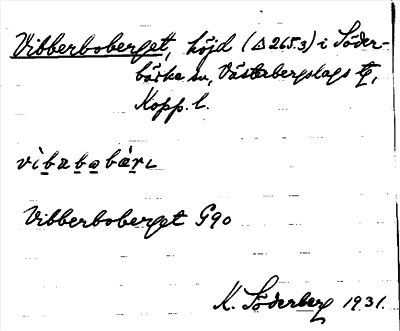 Vibberboberget, höjd (△265.3) i Söder-
bärke sn, Västerbergslags tg,
Kopp. l.
vìbabobàrɩ
Vibberboberget G90
K. Söderberg 1931.